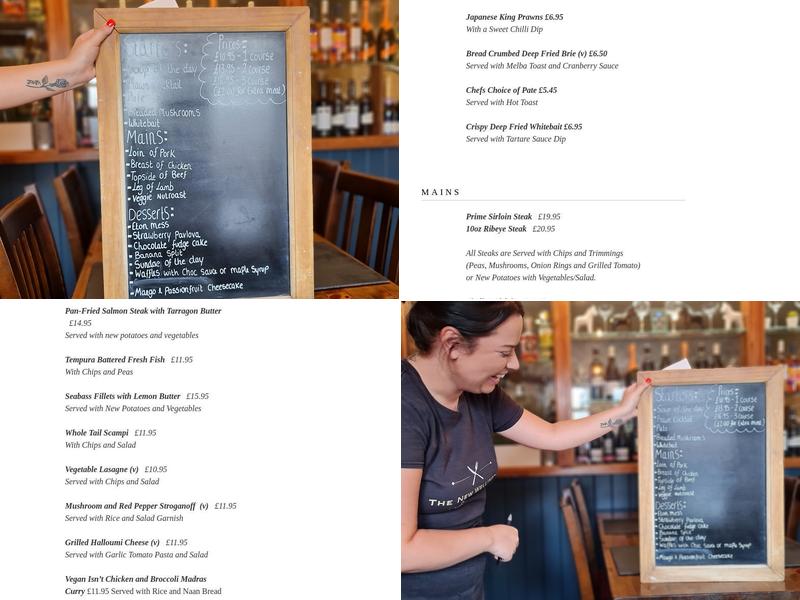 Starters:
Soup of the day
Prawn Cocktail
Pate
Breaded Mushrooms
Whitebait
Prices:
£10.95 - 1 course
£13.95 - 2 course
£16.95 - 3 course
(£2.00 for Extra meat)
Mains:
Loin of Pork
Breast of Chicken
Topside of Beef
Leg of Lamb
Veggie Nutroast
Desserts:
Eton mess
Strawberry Pavlova
Chocolate fudge cake
Banana Split
Sundae of the day
Waffles with Choc Sauce or maple Syrup
Mango & Passionfruit Cheesecake
Japanese King Prawns £6.95
With a Sweet Chilli Dip
Bread Crumbed Deep Fried Brie (v) £6.50
Served with Melba Toast and Cranberry Sauce
Chefs Choice of Pate £5.45
Served with Hot Toast
Crispy Deep Fried Whitebait £6.95
Served with Tartare Sauce Dip
MAINS
Prime Sirloin Steak £19.95
10oz Ribeye Steak £20.95
All Steaks are Served with Chips and Trimmings
(Peas, Mushrooms, Onion Rings and Grilled Tomato)
or New Potatoes with Vegetables/Salad.
Pan-Fried Salmon Steak with Tarragon Butter
£14.95
Served with new potatoes and vegetables
Tempura Battered Fresh Fish £11.95
With Chips and Peas
Seabass Fillets with Lemon Butter £15.95
Served with New Potatoes and Vegetables
Whole Tail Scampi £11.95
With Chips and Salad
Vegetable Lasagne (v) £10.95
Served with Chips and Salad
Mushroom and Red Pepper Stroganoff (v) £11.95
Served with Rice and Salad Garnish
Grilled Halloumi Cheese (v) £11.95
Served with Garlic Tomato Pasta and Salad
Vegan Isn't Chicken and Broccoli Madras
Curry £11.95 Served with Rice and Naan Bread
THE NEW
Starters:
Soup of the day
Prawn Cocktail
Pate
Breaded Mushrooms
Whitebait
Prices:
£10.95 - 1 course
£13.95 - 2 course
£16.95 - 3 course
(£2.00 for Extra meat)
Mains:
Loin of Pork
Breast of Chicken
Topside of Beef
Leg of Lamb
Veggie Nutroast
Desserts:
Eton mess
Strawberry Pavlova
Chocolate fudge cake
Banana Split
Sundae of the day
Waffles with Choc Sauce or maple Syrup
Mango & Passionfruit Cheesecake